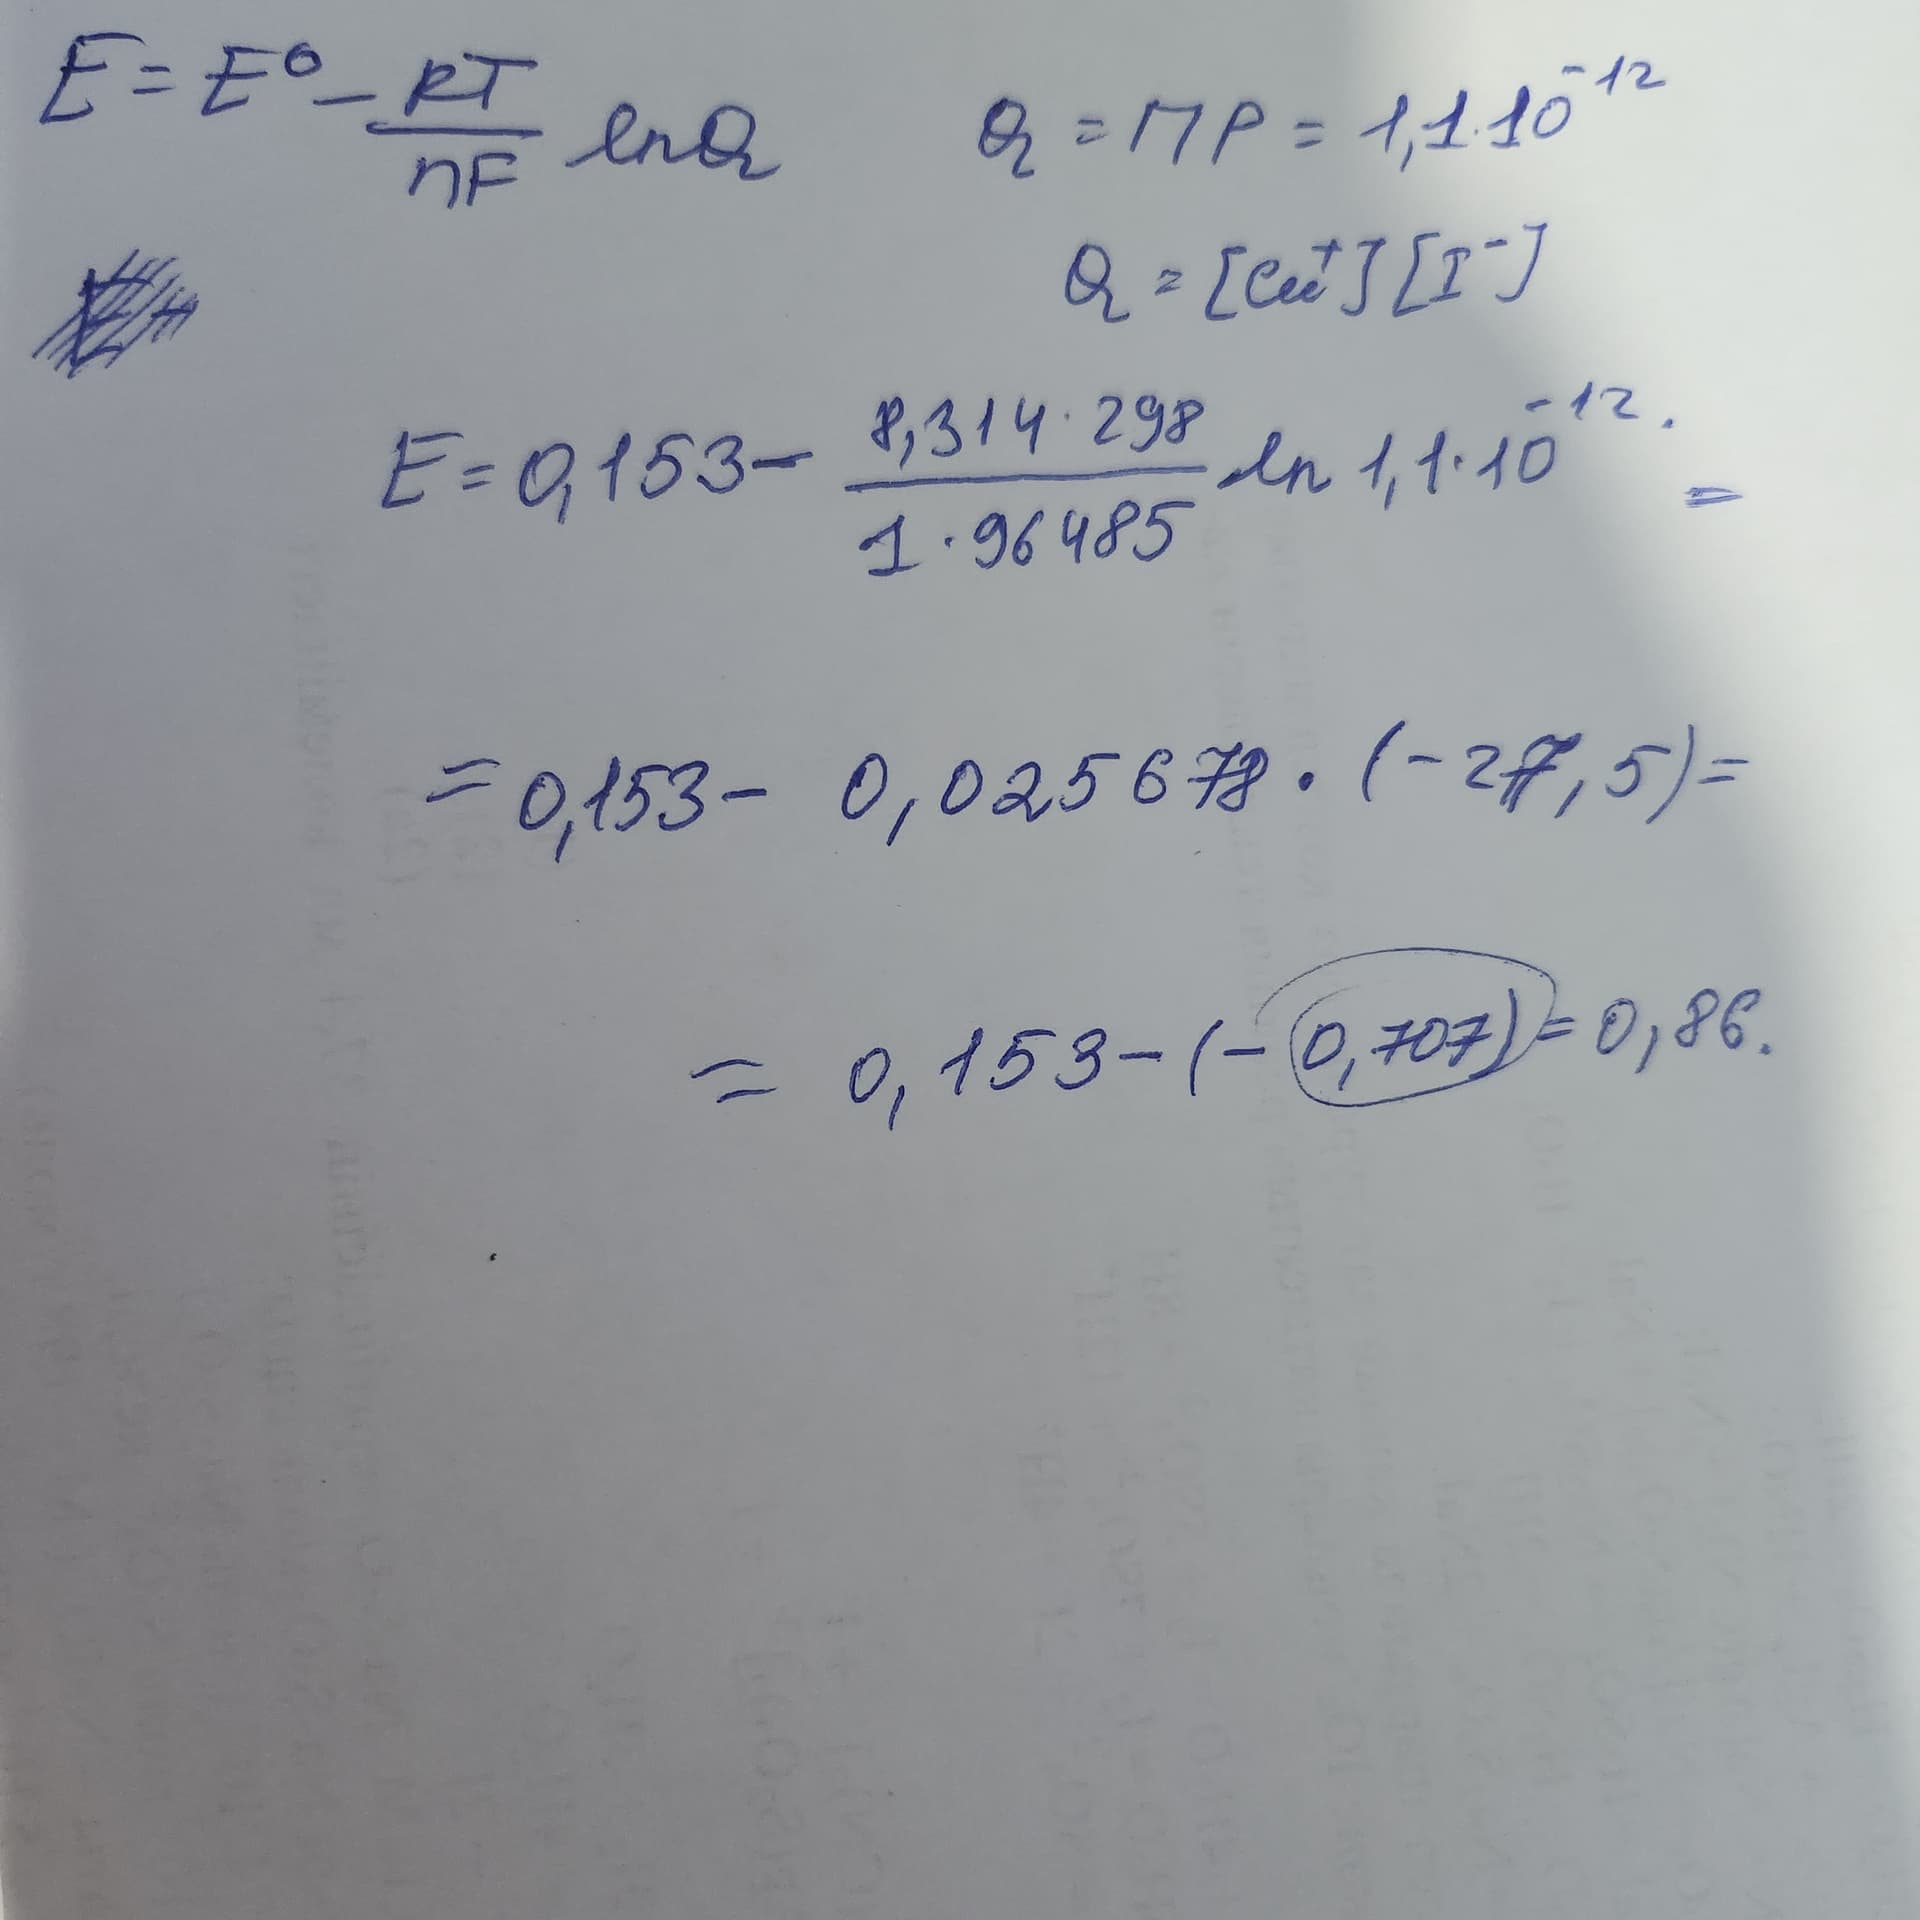 E = E⁰ - RT/nF lnQ Q = ПР = 1,1·10⁻¹²
Q = [Cu⁺][I⁻]
E = 0,153 - 8,314·298/1·96485 ln 1,1·10⁻¹². =
= 0,153 - 0,025678 · (-27,5) =
= 0,153 - (-0,707) = 0,86.